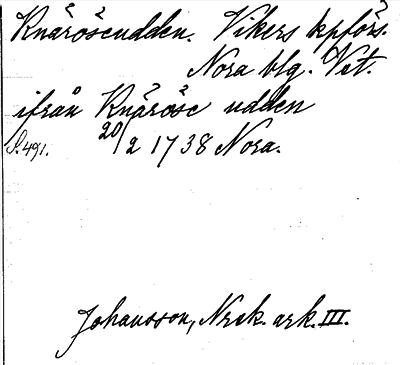 Knäröseudden. Vikers kpförs.
Nora blg. Vst.
ifrån Knäröse udden
S.491. 20/2 1738 Nora.
Johansson, Nrck. ark. III.